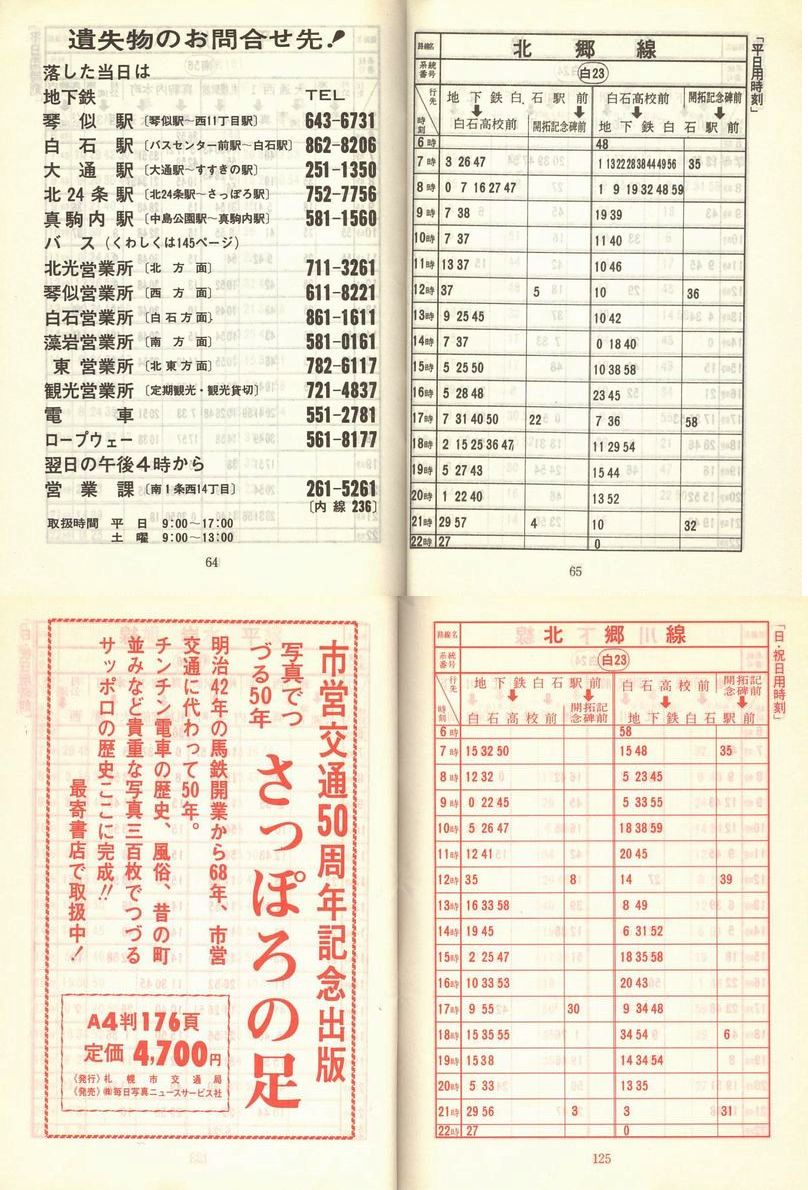 遺失物のお問合せ先!
落した当日は
地下鉄 TEL
琴似駅〔琴似駅～西11丁目駅〕 643-6731
白石駅〔バスセンター前駅～白石駅〕 862-8206
大通駅〔大通駅～すすきの駅〕 251-1350
北24条駅〔北24条駅～さっぽろ駅〕 752-7756
真駒内駅〔中島公園駅～真駒内駅〕 581-1560
バス(くわしくは145ページ)
北光営業所〔北方面〕 711-3261
琴似営業所〔西方面〕 611-8221
白石営業所〔白石方面〕 861-1611
藻岩営業所〔南方面〕 581-0161
東営業所〔北東方面〕 782-6117
観光営業所〔定期観光・観光貸切〕 721-4837
電車 551-2781
ロープウェー 561-8177
翌日の午後4時から
営業課〔南1条西14丁目〕 261-5261
〔内線 236〕
取扱時間 平日 9:00～17:00
土曜 9:00～13:00
64
「平日用時刻」
路線名 北郷線
系統番号 白23
行先 時刻
地下鉄白石駅前 白石高校前 開拓記念碑前
白石高校前 開拓記念碑前 地下鉄白石駅前
6時 48
7時 3 26 47 1 13 22 28 38 44 49 56 35
8時 0 7 16 27 47 1 9 19 32 48 59
9時 7 38 19 39
10時 7 37 11 40
11時 13 37 10 46
12時 37 5 10 36
13時 9 25 45 10 42
14時 7 37 0 18 40
15時 5 25 50 10 38 58
16時 5 28 48 23 45
17時 7 31 40 50 22 7 36 58
18時 2 15 25 36 47 11 29 54
19時 5 27 43 15 44
20時 1 22 40 13 52
21時 29 57 4 10 32
22時 27 0
65
市営交通50周年記念出版
写真でつづる50年 さっぽろの足
明治42年の馬鉄開業から68年、市営
交通に代わって50年。
チンチン電車の歴史、風俗、昔の町
並みなど貴重な写真三百枚でつづる
サッポロの歴史ここに完成!!
最寄書店で取扱中!
A4判176頁
定価 4,700円
〈発行〉札幌市交通局
〈発売〉㈱毎日写真ニュースサービス社
「日・祝日用時刻」
路線名 北郷線
系統番号 白23
行先 時刻
地下鉄白石駅前 白石高校前 開拓記念碑前
白石高校前 開拓記念碑前 地下鉄白石駅前
6時 58
7時 15 32 50 15 48 35
8時 12 32 5 23 45
9時 0 22 45 5 33 55
10時 5 26 47 18 38 59
11時 12 41 20 45
12時 35 8 14 39
13時 16 33 58 8 49
14時 19 45 6 31 52
15時 2 25 47 18 35 58
16時 10 33 53 20 43
17時 9 55 30 9 34 48
18時 15 35 55 34 54 6
19時 15 38 14 34 54
20時 5 33 13 35
21時 29 56 3 3 31
22時 27 0
125